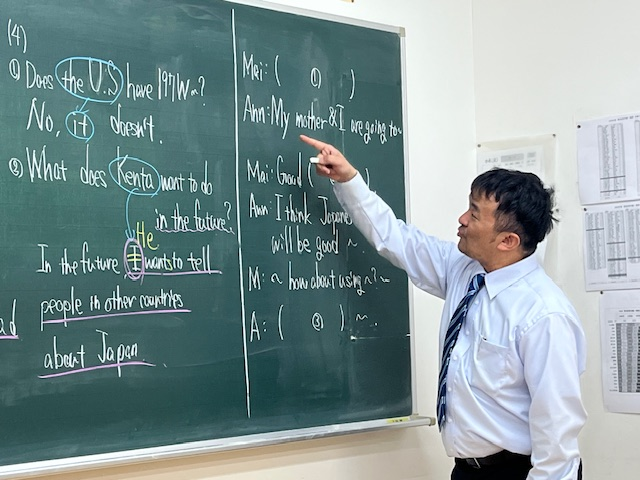 (4)
① Does the U.S have 197W~?
No, it doesn't.
② What does Kenta want to do
in the future?
He
In the future I wants to tell
people in other countries
about Japan.
ad
Mai: ( ① )
Ann: My mother & I are going to~
Mai: Good (
Ann: I think Japane
will be good ~
M: ~ how about using ~? ~
A: ( ③ ) ~.